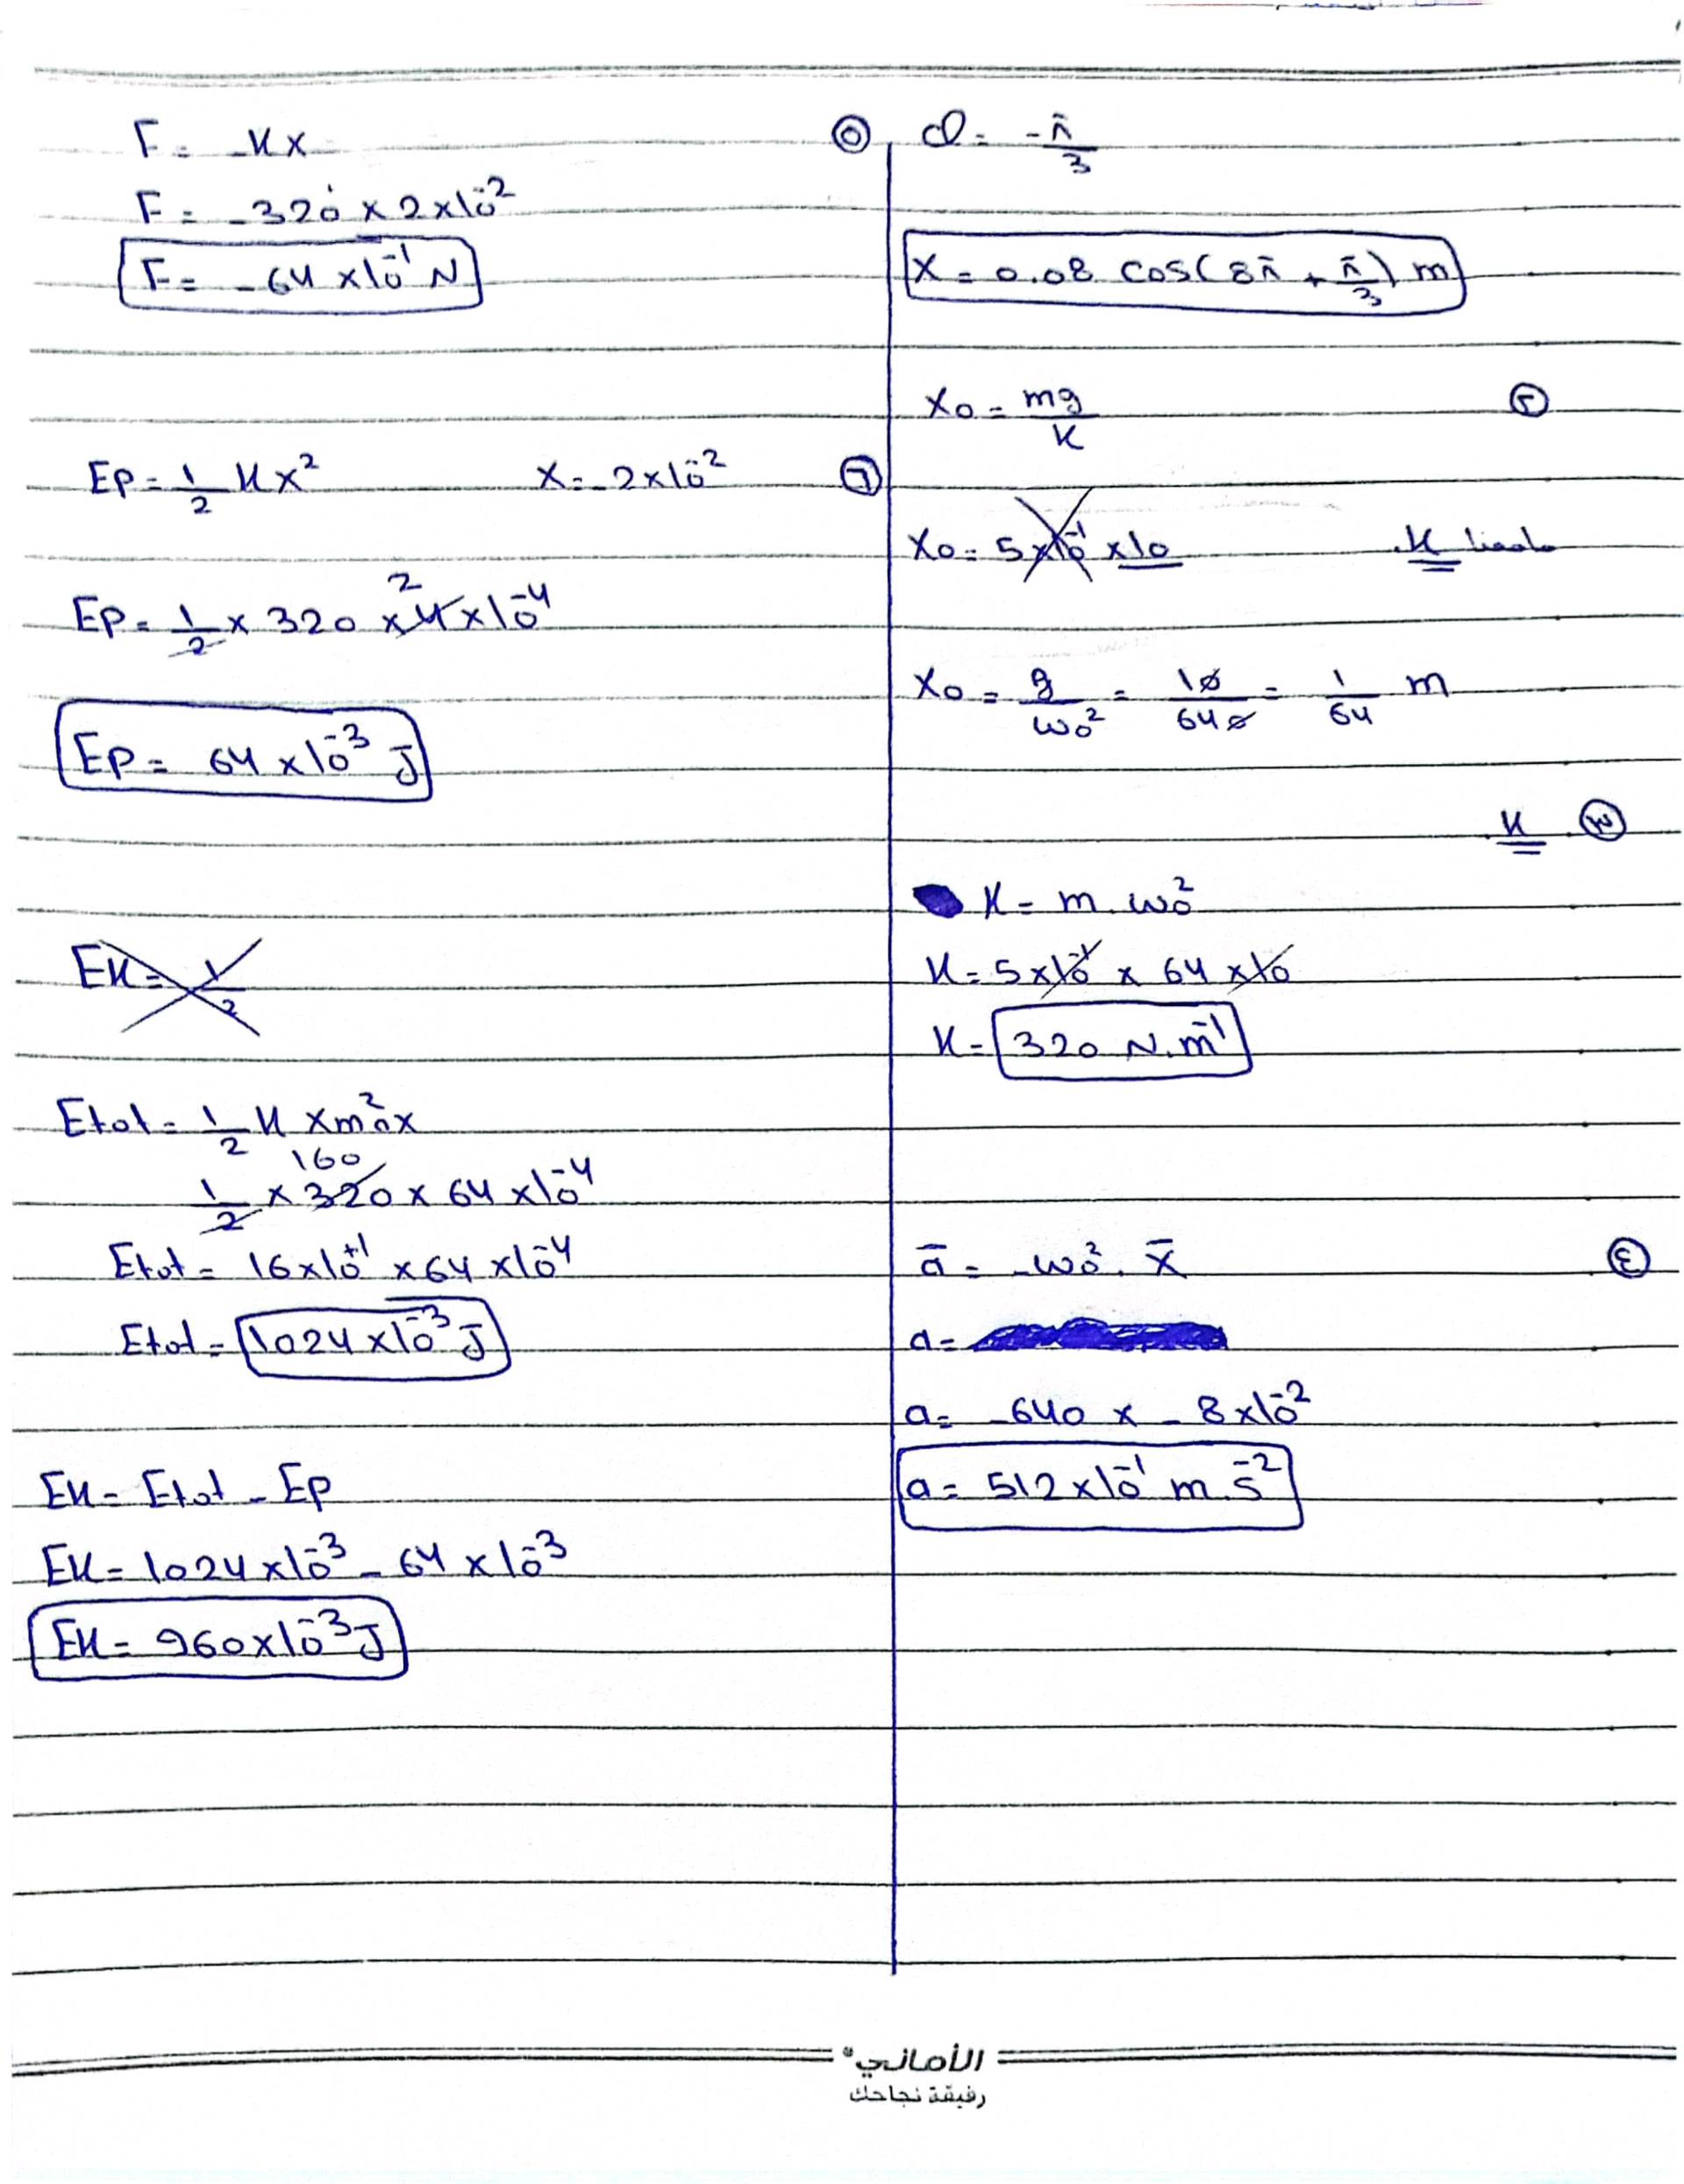 φ = -π/3
X = 0.08 cos(8π + π/3) m
٢
X₀ = mg/K
X₀ = 5×10⁻¹ ×10
ماعنا K
X₀ = g/ω₀² = 10/640 = 1/64 m
٣ K
K = m. ω₀²
K = 5×10⁻¹ × 64 ×10
K = 320 N.m⁻¹
٤
a̅ = -ω₀². x̅
a =
a = -640 × -8×10⁻²
a = 512×10⁻¹ m.s⁻²
٥
F = -Kx
F = -320 × 2×10⁻²
F = -64 ×10⁻¹ N
٦
Ep = 1/2 Kx² X = -2×10⁻²
2
Ep = 1/2 × 320 × 4 ×10⁻⁴
Ep = 64 ×10⁻³ J
EK = 1/2
Etot = 1/2 K Xmax²
160
1/2 × 320 × 64 ×10⁻⁴
Etot = 16×10⁺¹ ×64 ×10⁻⁴
Etot = 1024×10⁻³ J
EK = Etot - Ep
EK = 1024×10⁻³ - 64 ×10⁻³
EK = 960×10⁻³ J
الأماني
رفيقة نجاحك